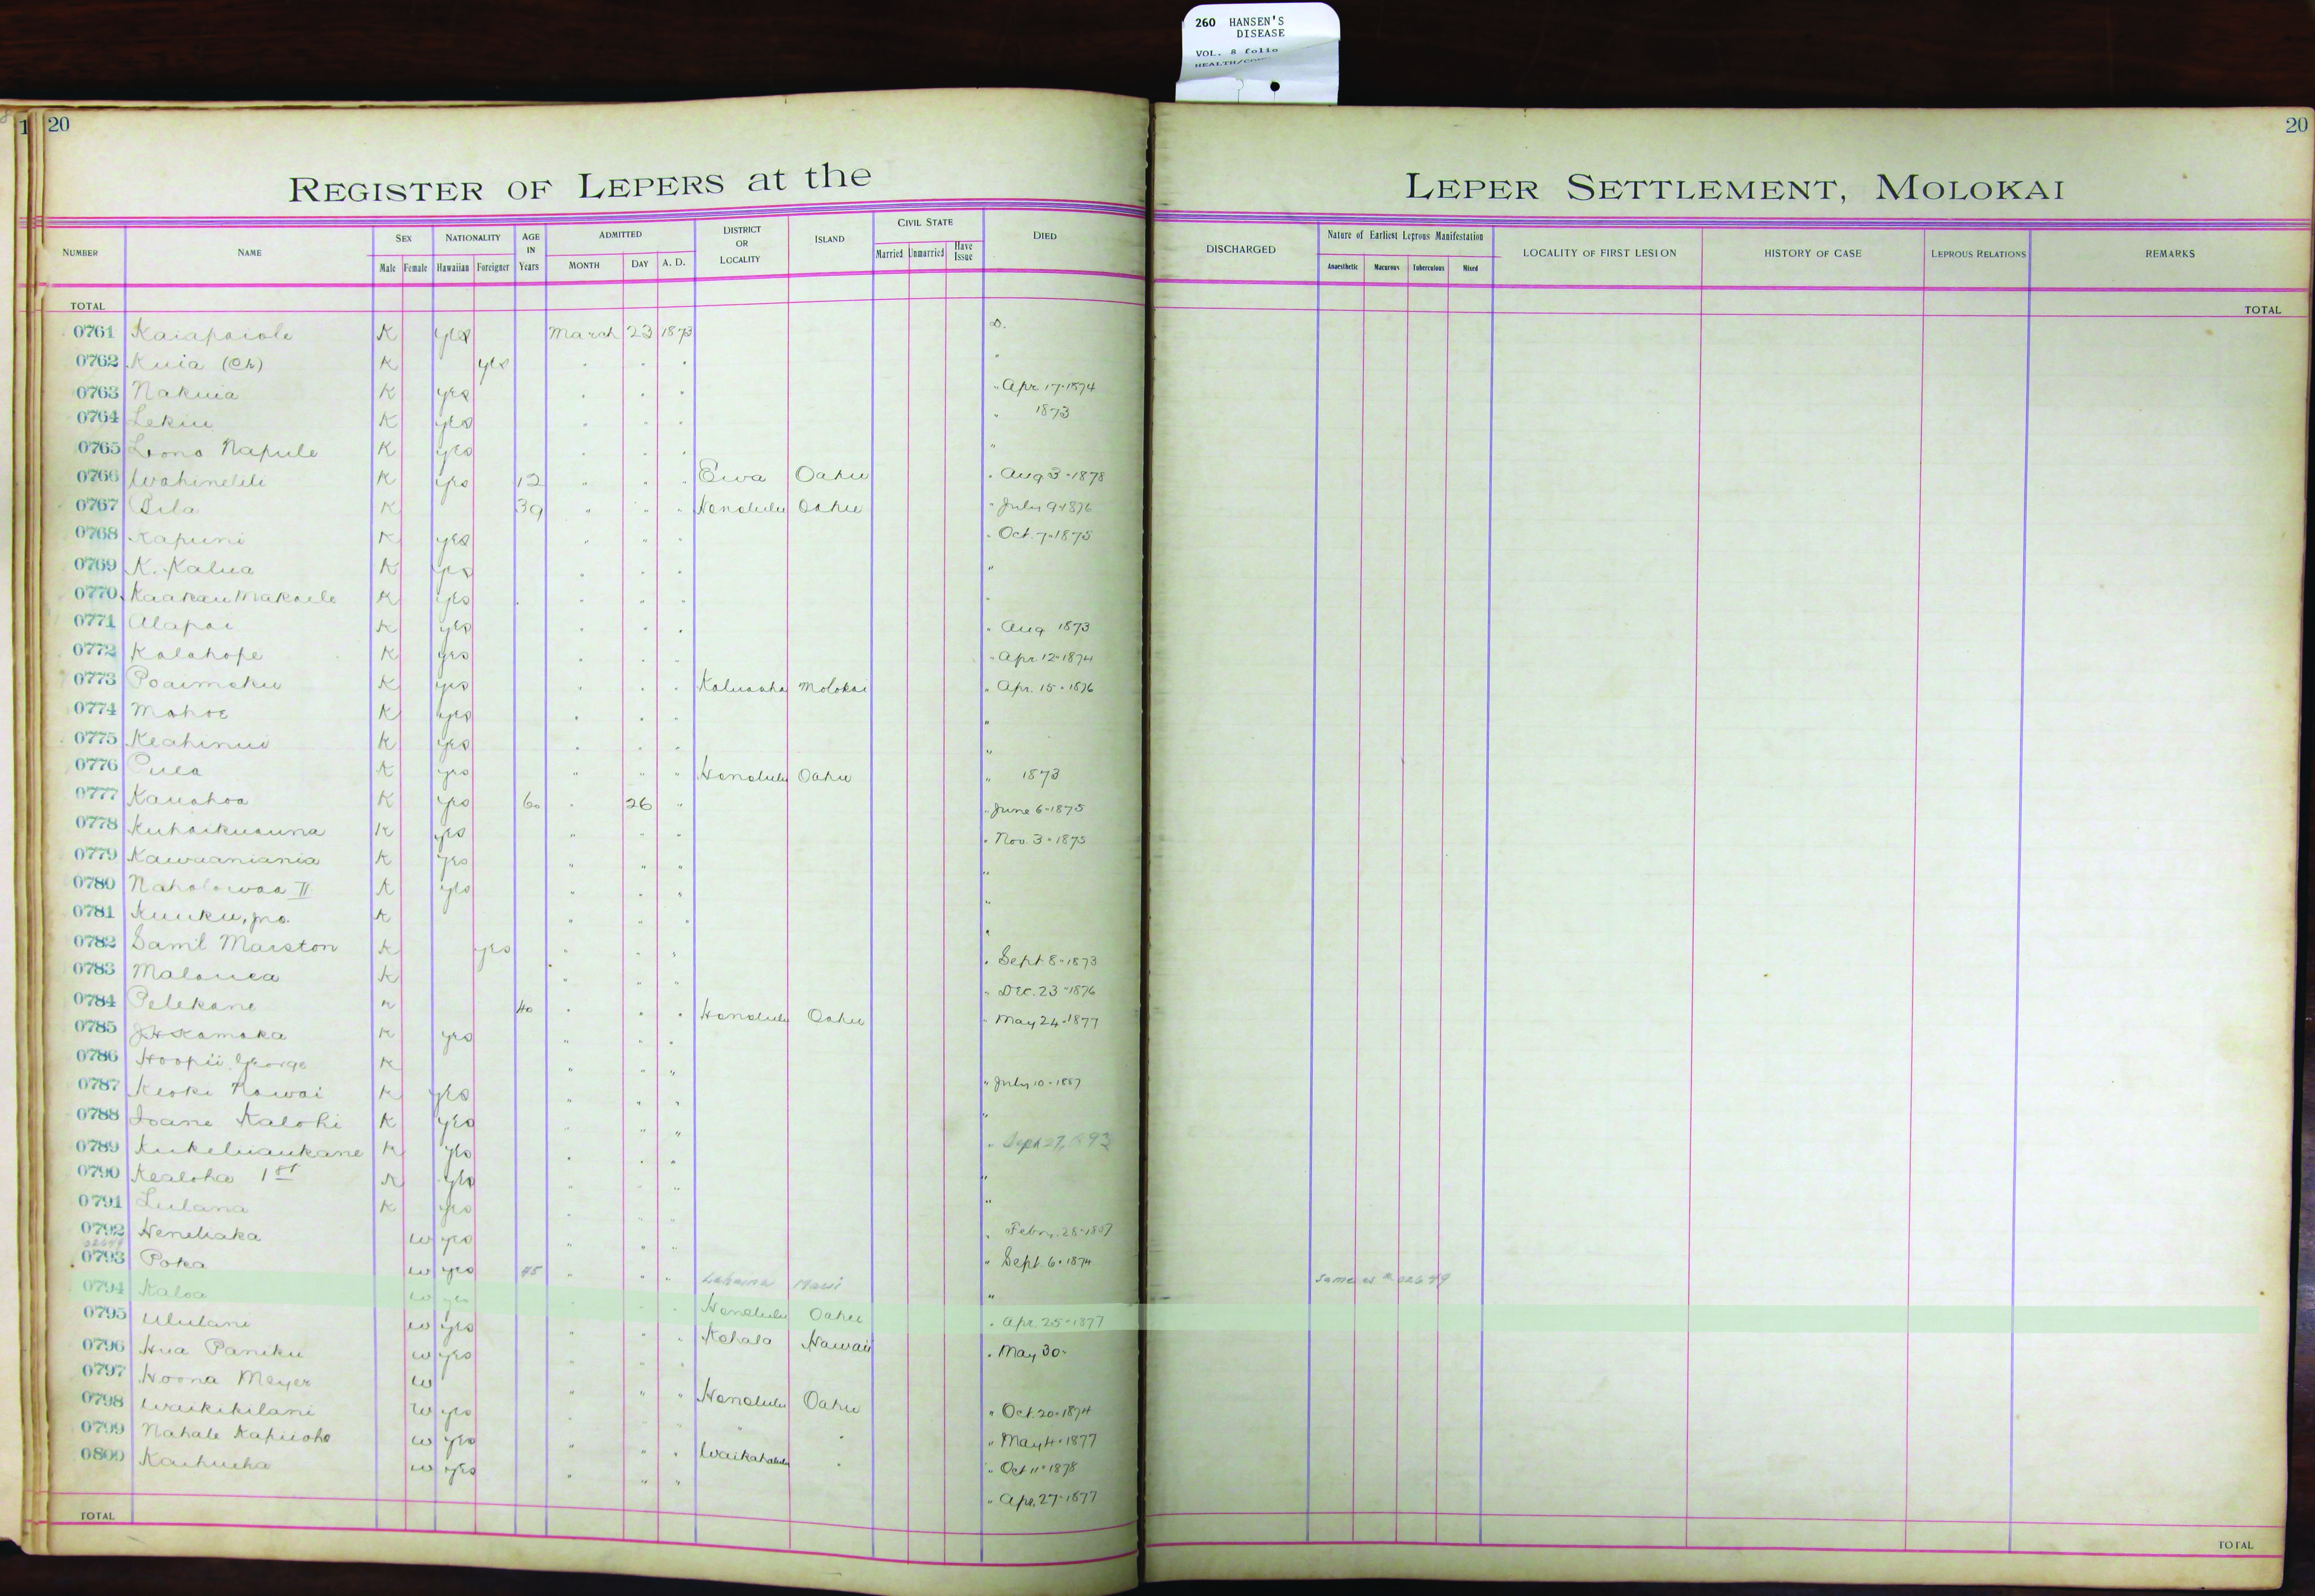 260 HANSEN'S
DISEASE
VOL. 8 folio
1 20
20
REGISTER OF LEPERS at the LEPER SETTLEMENT, MOLOKAI
NUMBER NAME SEX Male Female NATIONALITY Hawaiian Foreigner AGE IN Years ADMITTED MONTH DAY A. D. DISTRICT OR LOCALITY ISLAND CIVIL STATE Married Unmarried Have Issue DIED DISCHARGED Nature of Earliest Leprous Manifestation Anaesthetic Macurous Tuberculous Mixed LOCALITY OF FIRST LESION HISTORY OF CASE LEPROUS RELATIONS REMARKS
TOTAL TOTAL
0761 Kaiapaiole K yes March 23 1873 D.
0762 Kuia (Ch) K yes
0763 Nakuia K yes " Apr 17-1874
0764 Lekiu K yes " 1873
0765 Lono Napule K yes "
0766 Wahinelili K yes 12 " " " Ewa Oahu " Aug 3-1878
0767 Pila K 39 " " " Honolulu Oahu " July 9-1876
0768 Kapuni K yes " " " " Oct. 7-1875
0769 K. Kalua K yes "
0770 Kaakau Makaele K yes "
0771 Alapai K yes " Aug 1873
0772 Kalahope K yes " Apr. 12-1874
0773 Poaimoku K yes Kaluaaha Molokai " Apr. 15-1876
0774 Mahoe K yes "
0775 Keahinui K yes "
0776 Pulea K yes " " " Honolulu Oahu " 1873
0777 Kauahoa K yes 60 " 26 " " June 6-1875
0778 Kuhaikuauna K yes " " " " Nov. 3-1875
0779 Kawaaniania K yes " " " "
0780 Naholowaa II K yes " " " "
0781 Kuuku, Jno. K " " " "
0782 Saml Marston K yes " " " " Sept 8-1873
0783 Malauea K " " " " Dec. 23-1876
0784 Pelekane K 40 " " " Honolulu Oahu " May 24-1877
0785 J.H. Kamaka K yes " " "
0786 Hoopii George K " " " " July 10-1887
0787 Keoki Nawai K yes " " " "
0788 Ioane Kalohi K yes " " " " Sept 27, 1893
0789 Kukeluaukane K yes " " " "
0790 Kealoha 1st K yes " " " "
0791 Lulana K yes " " " " Febr. 28-1887
0792 Henehaka W yes " " " " Sept. 6-1874
02649
0793 Poka W yes 45 " " " Lahaina Maui " Same as # 02649
0794 Kaloa W yes " " " Honolulu Oahu " Apr. 25-1877
0795 Ululani W yes " " " Kohala Hawaii " May 30-
0796 Hua Paniku W yes " " "
0797 Hoona Meyer W " " " Honolulu Oahu " Oct. 20-1874
0798 Waikikilani W yes " " " " " " May 4-1877
0799 Nahale Kapuoho W yes " " " Waikahalulu " " Oct 11-1878
0800 Kaihueha W yes " " " " Apr. 27-1877
TOTAL TOTAL